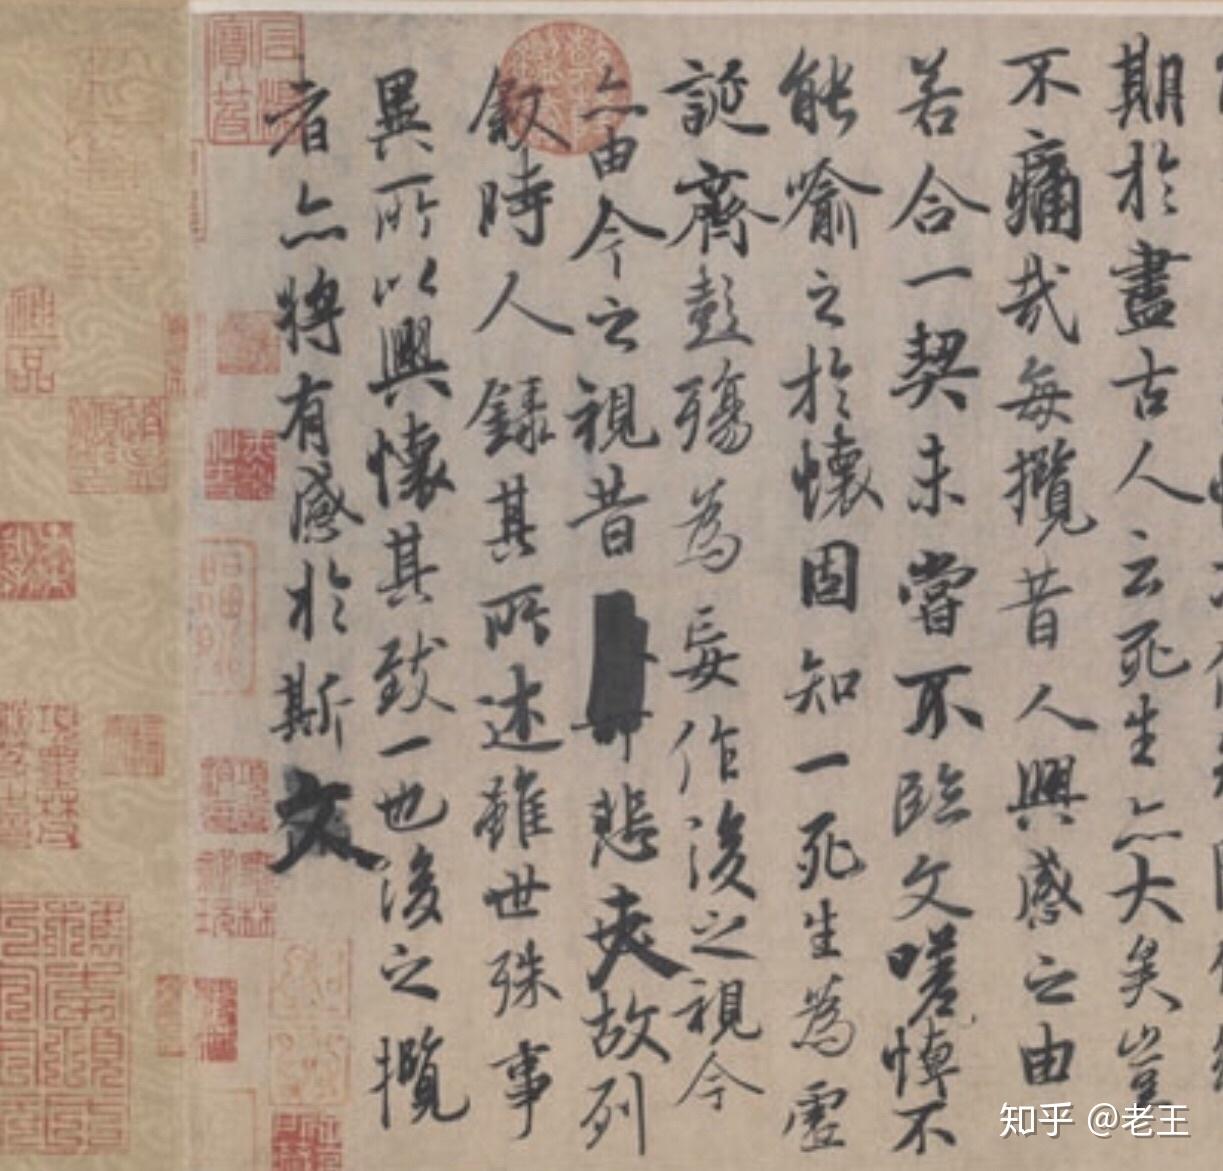 期於盡古人云死生亦大矣豈
不痛哉每攬昔人興感之由
若合一契未嘗不臨文嗟悼不
能喻之於懷固知一死生為虛
誕齊彭殤為妄作後之視今
亦由今之視昔 悲夫故列
敘時人錄其所述雖世殊事
異所以興懷其致一也後之攬
者亦將有感於斯文
知乎 @老王